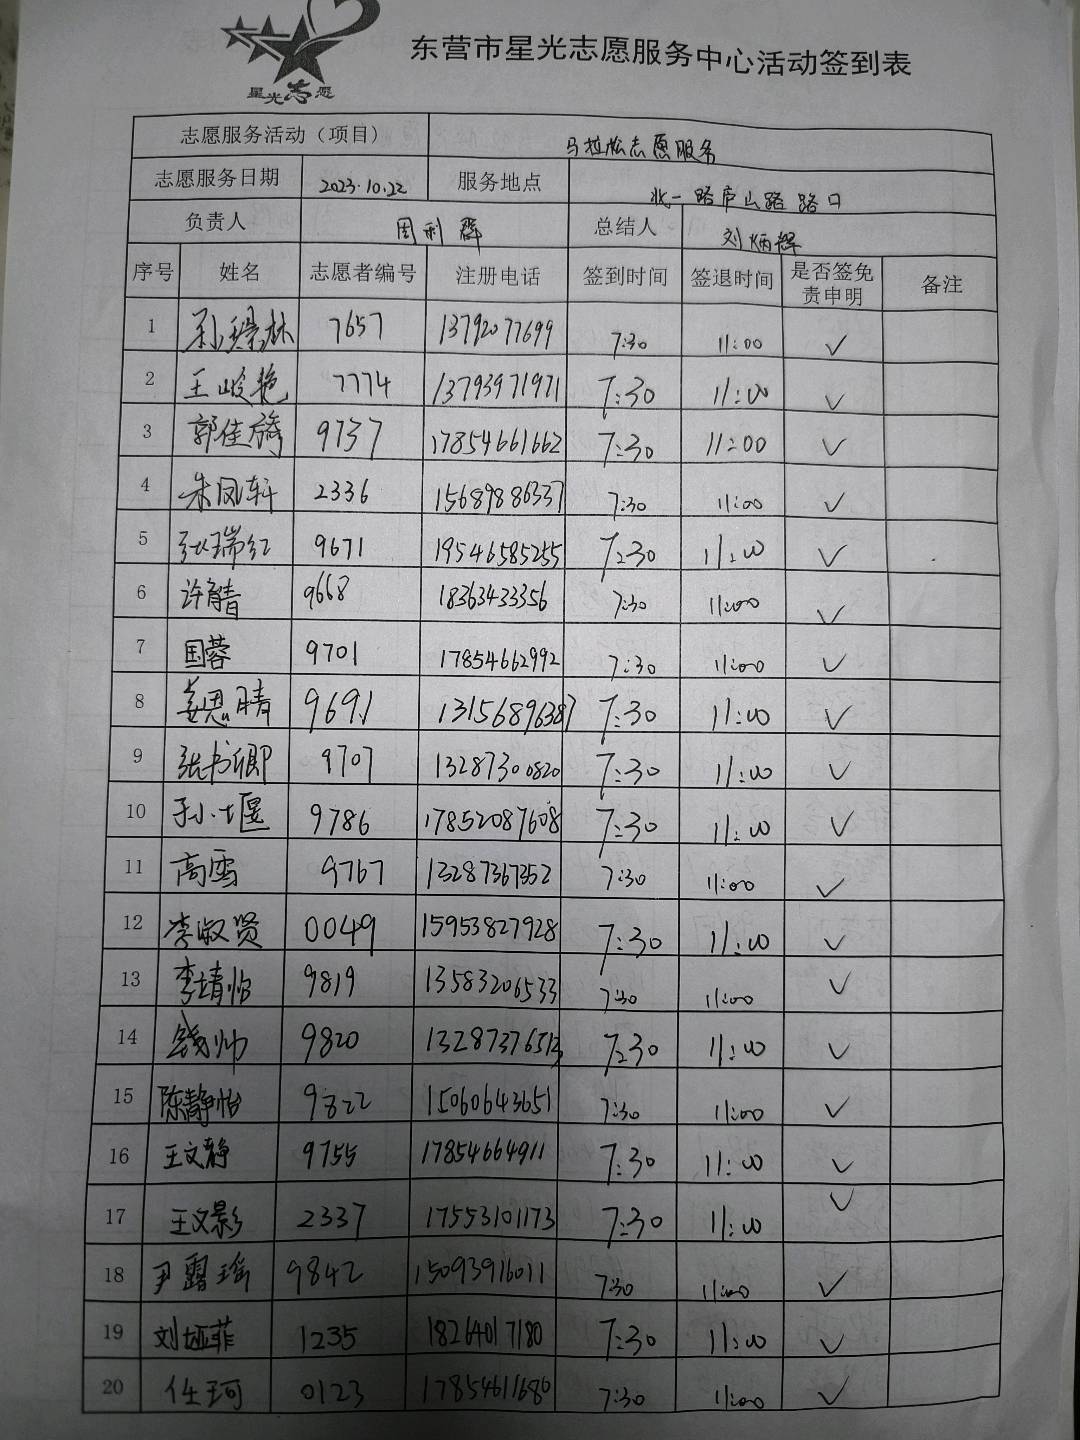 星光志愿
东营市星光志愿服务中心活动签到表
志愿服务活动（项目） 马拉松志愿服务
志愿服务日期 2023.10.22 服务地点 北一路庐山路路口
负责人 周利群 总结人 刘炳辉
序号 姓名 志愿者编号 注册电话 签到时间 签退时间 是否签免责申明 备注
1 7657 13792077699 7:30 11:00 ✓
2 王岐艳 7774 13793971971 7:30 11:00 ✓
3 郭佳旖 9737 17854661662 7:30 11:00 ✓
4 朱凤轩 2336 15689886337 7:30 11:00 ✓
5 张瑞红 9671 19546585255 7:30 11:00 ✓
6 许靖 9668 18363433356 7:30 11:00 ✓
7 国蓉 9701 17854662992 7:30 11:00 ✓
8 姜思晴 9691 13156896387 7:30 11:00 ✓
9 张书卿 9707 13287300820 7:30 11:00 ✓
10 于小堰 9786 17852087608 7:30 11:00 ✓
11 高雪 9767 13287367352 7:30 11:00 ✓
12 李淑贤 0049 15953827928 7:30 11:00 ✓
13 李靖怡 9819 13583206533 7:30 11:00 ✓
14 钱帅 9820 7:30 11:00 ✓
15 陈静怡 9822 15060643651 7:30 11:00 ✓
16 王文静 9755 17854664911 7:30 11:00 ✓
17 王文影 2337 17553101173 7:30 11:00 ✓
18 尹露瑶 9842 15093916011 7:30 11:00 ✓
19 刘娅菲 1235 18264017180 7:30 11:00 ✓
20 任珂 0123 17854611680 7:30 11:00 ✓